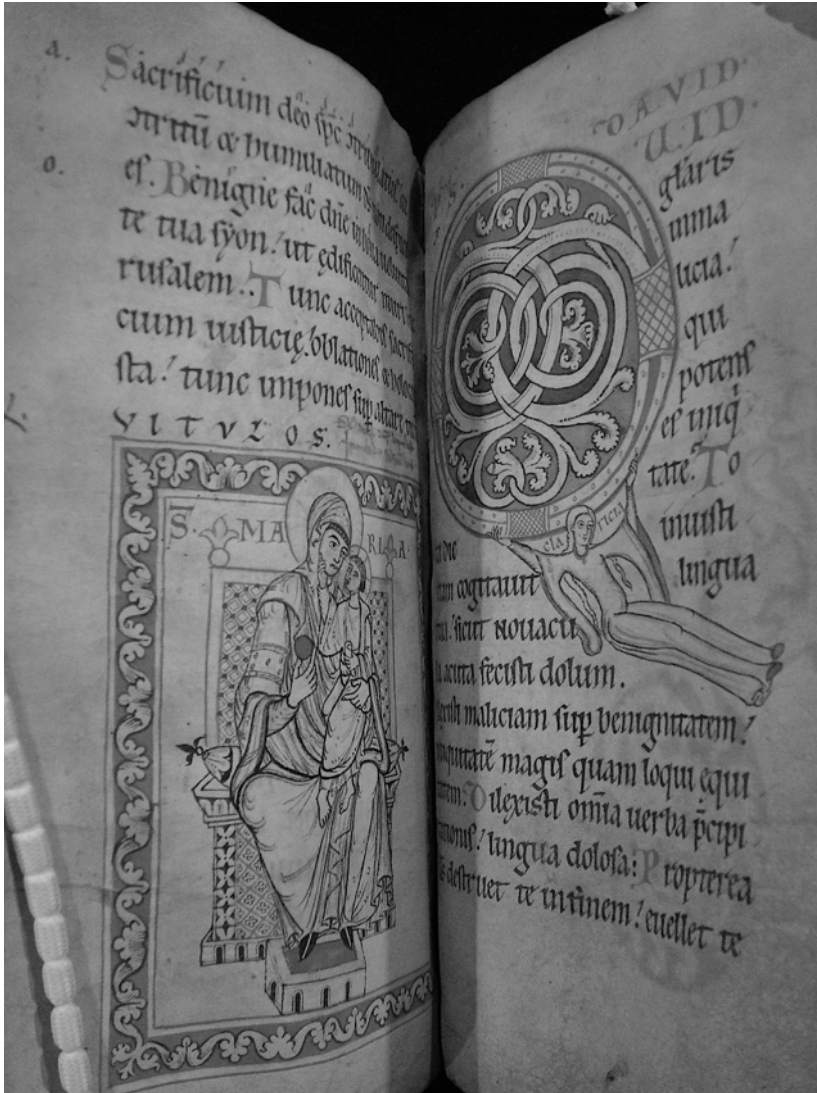 a.
Sacrificium deo sp̄c
ↄtritū & humiliatum
o.
es. Benigne fac dn̄e in bona
te tua syon! ut ędificentur muri
rusalem. Tunc acceptabis sacrifi
cium iusticię! oblationes & holocau
sta! tunc impones sup̱ altare
VITULOS.
S. MA RI A
DAVID
U ID
gl̄aris
inma
licia!
qui
potens
es iniq̇
tate. To
inuisti
lingua
CLA RICIA
cogitauit
sicut nouacu
la acuta fecisti dolum.
maliciam sup̱ benignitatem!
iniquitatē magis quam loqui equi
tatem. Dilexisti om̄ia uerba p̄cipi
tationis! lingua dolosa: Propterea
destruet te in finem! euellet te